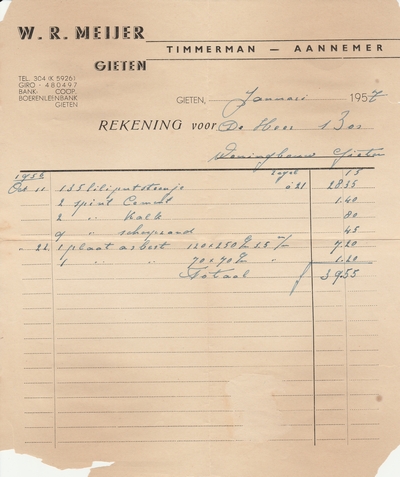 W. R. MEIJER
TIMMERMAN — AANNEMER
GIETEN
TEL. 304 (K 5926)
GIRO - 480497
BANK- COOP.
BOERENLEENBANK
GIETEN
GIETEN, Januari 1957
REKENING voor De Heer Bos
Woningbouw Gieten
zegel 15
1956
Oct 11 135 liliputsteentje à 21 28.35
2 spint Cement 1.40
2 " Kalk 80
9 " scherpzand 45
" 22 1 plaat asbest 120x250 7.20
1 " " 70x70 " 1.20
Totaal 39.55